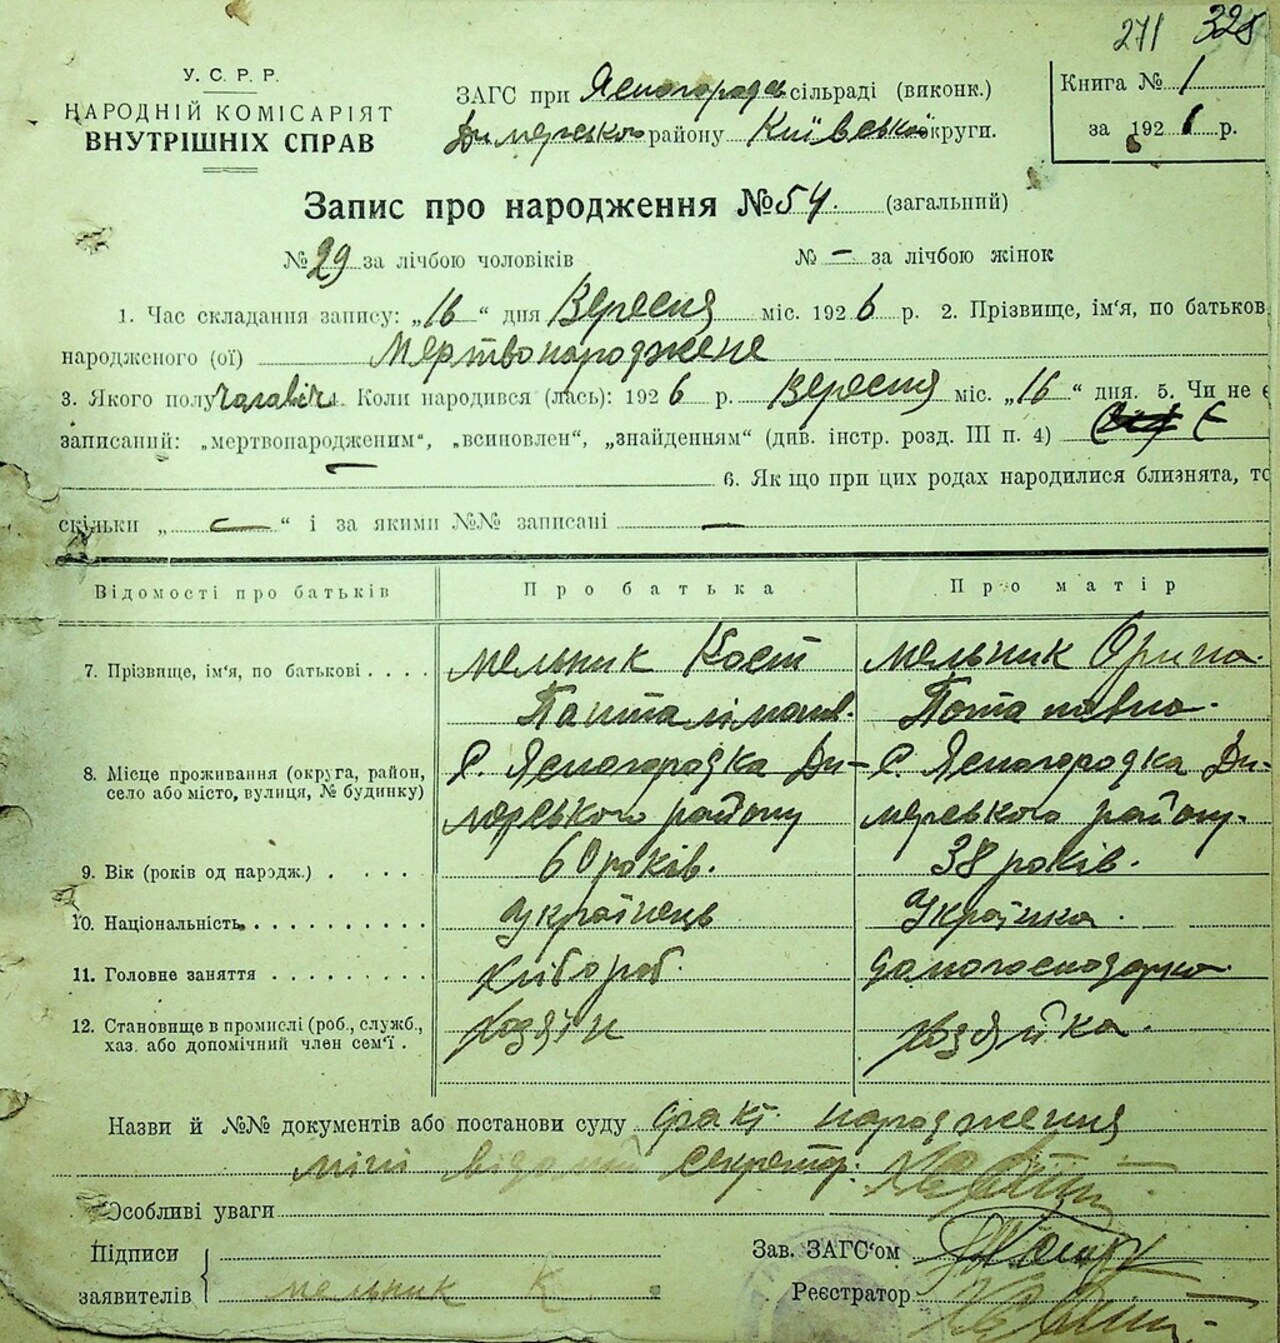 271 328
У. С. Р. Р.
НАРОДНІЙ КОМІСАРІЯТ
ВНУТРІШНІХ СПРАВ
ЗАГС при Ясногородськ сільраді (виконк.)
Димерського району Київської округи.
Книга № 1
за 1926 р.
Запис про народження № 54. (загальний)
№ 29 за лічбою чоловіків № — за лічбою жінок
1. Час складання запису: „16“ дня Вересня міс. 1926 р. 2. Прізвище, ім‘я, по батьков
народженого (ої) Мертвонароджене
3. Якого полу чоловіч. 4. Коли народився (лась): 1926 р. Вересня міс. „16“ дня. 5. Чи не є
записаний: „мертвонародженим“, „всиновлен“, „знайденням“ (див. інстр. розд. III п. 4)
6. Як що при цих родах народилися близнята, то
скільки „ — “ і за якими №№ записані —
Відомості про батьків Про батька Про матір
7. Прізвище, ім‘я, по батькові . . . . Мельник Кост Мельник Орина.
Панталімонов. Потапівна.
8. Місце проживання (округа, район, село або місто, вулиця, № будинку) С. Ясногородка Ди- С. Ясногородка Ди-
мерського району мерського району.
9. Вік (років од народж.) . . . . 60 років. 38 років.
10. Національність. . . . . . . . . . . Українець Українка.
11. Головне заняття . . . . . . . . . Хлібороб. домогосподарка.
12. Становище в промислі (роб., служб., хаз. або допомічний член сем‘ї . Хозяїн хозяйка.
Назви й №№ документів або постанови суду факт народження
мині відомий секретар:
Особливі уваги
Підписи
заявителів Мельник К
Зав. ЗАГС‘ом
Реєстратор